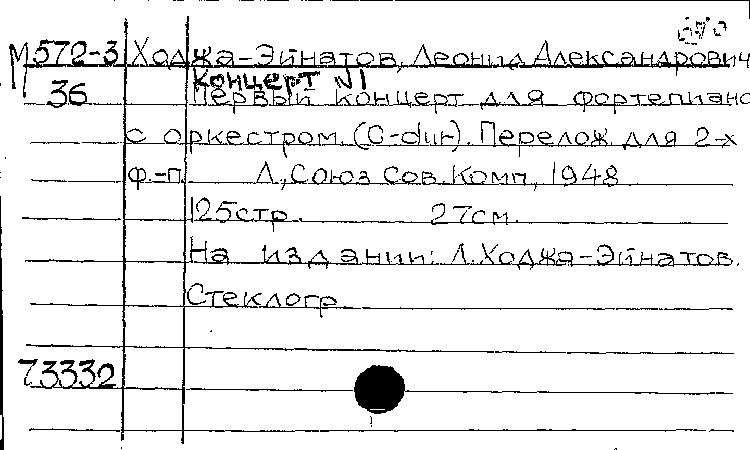 М572-3 Ходжа-Эйнатов, Леонид Александрович
Концерт N1
36 Первый концерт для фортепиано
с оркестром. (C-dur). Перелож. для 2-х
ф.-п. Л., Союз Сов. Комп., 1948
125стр. 27см.
На издании: Л. Ходжа-Эйнатов.
Стеклогр.
73332